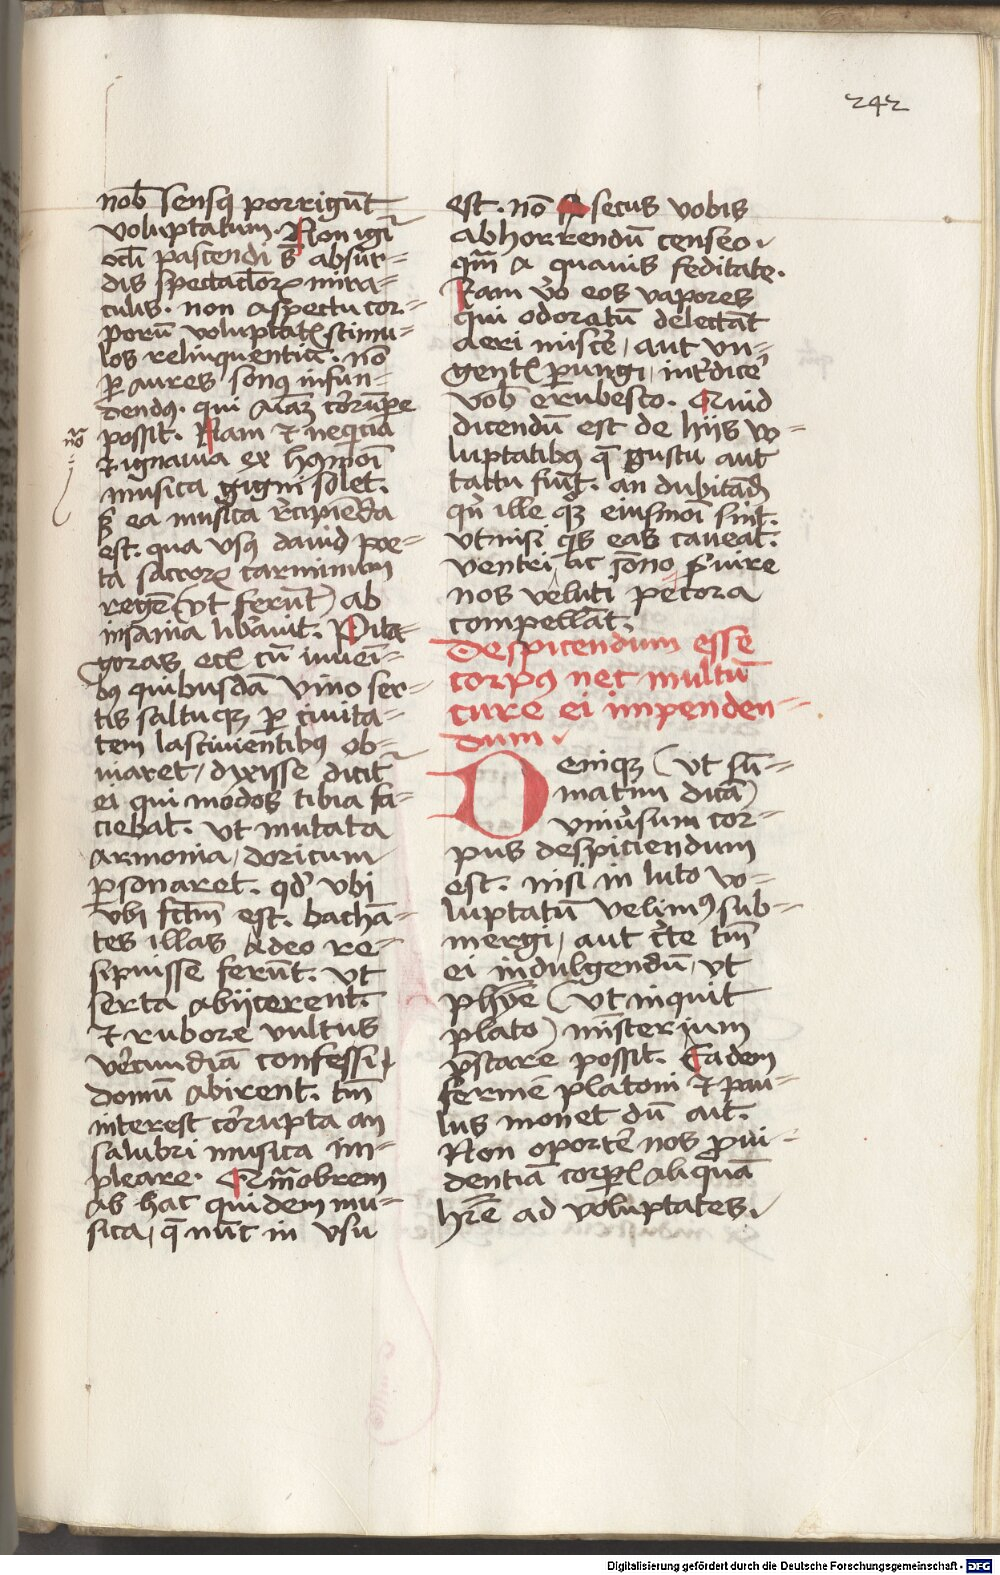 242
nob̄ sensꝰ porrigūt
voluptatum. Non igit᷑
ocl̄i pascendi s̄t absur=
dis spectacl̄orꝝ mira=
culis. non aspectu cor=
porū voluptatꝭ stimu=
los relinquentiū. nō
ꝑ aures sonꝰ infun=
dendꝰ. qui aīaꝫ corrūpe
possit. Nam et neqͥcia
nōᷓ
et ignauia ex hꝰmōi
musica gigni solet.
sꝫ ea musica recipiēda
est. qua vsꝰ dauid poe=
ta sacrorꝝ carminum
regē (vt ferūt) ab
insania liberauit. Pita=
goras ecꝭ cū iuueni=
bꝰ quibusdā vino ser=
tis saltuqꝫ ꝑ ciuita=
tem lasciuientibꝰ ob=
uiaret, dixisse dicit᷑
ei qui modos tibia fa=
ciebat. vt mutata
armonia, doricum
ꝑsonaret. qd̄ vbi
vbi fct̄m est. bachā=
tes illas adeo re=
sipuisse ferūt. vt
serta abijcerent.
et rubore vultus
verecundiā confessi,
domū abirent. tm̄
interest corrupta an
salubri musica im=
pleare. Qm̄obrem
ab hac quidem mu=
sica, q̄ nūc in vsu
est. nō secus vobis
abhorrendū censeo.
qm̄ a quauis feditate.
Nam v̉o eos vapores
qui odoratū delectāt
aeri miscere, aut vn=
gentꝭ ꝑungi, int̉dice̓
vob̄ erubesco. Quid
dicendū est de hijs vo=
luptatibꝰ q̄ gustu aut
tactu fiūt. an dubitādū
qn̉ ille qͥꝫ eiusmōi sint.
vt nisi qͥs eas caueat.
ventri ac sōno ẜuire
nos veluti pecora
compellāt.
Despicendum esse
corpꝰ nec multū
cure ei impenden=
dum.
Deniqꝫ (vt sū=
matim dicā)
vniũsum cor=
pus despiciendum
est. nisi in luto vo=
luptatū velimꝰ sub=
mergi, aut cẻte tm̄
ei indulgendū, vt
phyē (vt inquit
plato) mīsterium
p̄stare possit. Eadem
ferme platoni et pau=
lus monet dū ait.
Non oporte̓ nos ꝓui=
dentiā corpꝭ aliquā
hr̄e ad voluptates.
Digitalisierung gefördert durch die Deutsche Forschungsgemeinschaft - DFG